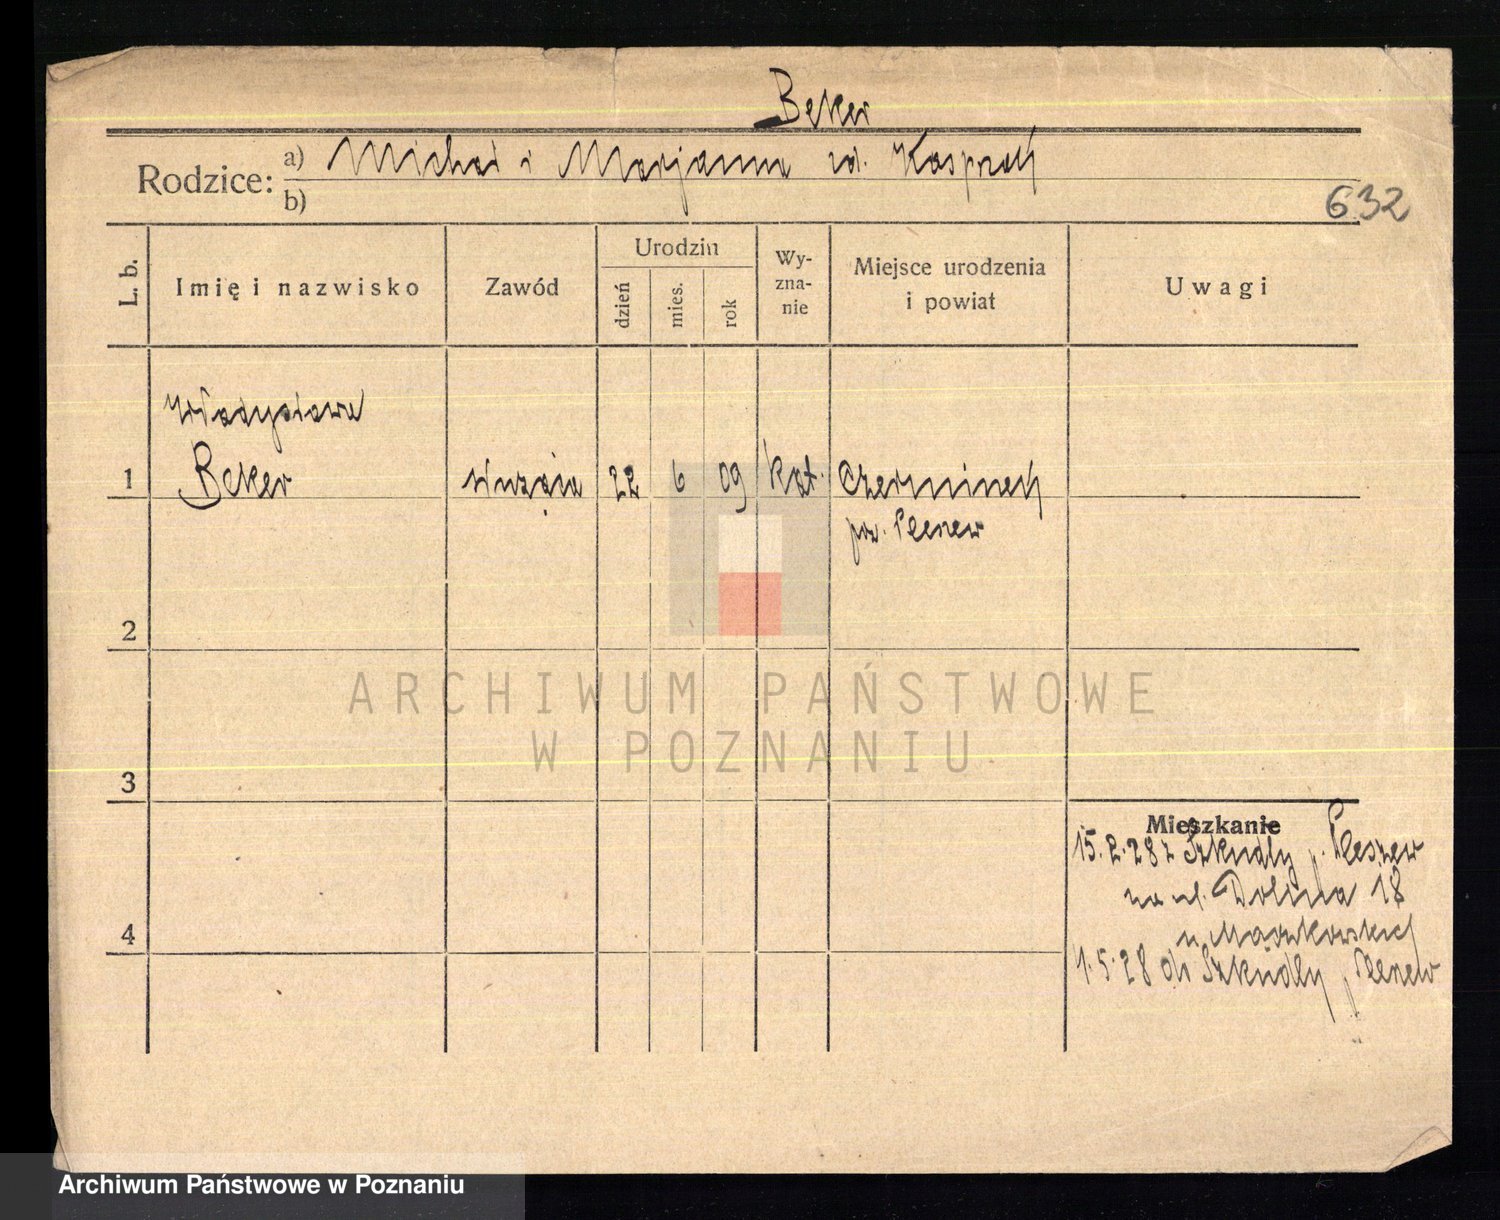 Beker
Rodzice: a) Michał i Marjanna zd. Kasprzak
b)
632
L. b.
Imię i nazwisko
Zawód
Urodzin
dzień
mies.
rok
Wy-
zna-
nie
Miejsce urodzenia
i powiat
Uwagi
Władysława
1 Beker służąca 22 6 09 kat. Czerminek
pow. Pleszew
2
ARCHIWUM PAŃSTWOWE
W POZNANIU
3
Mieszkanie
15.2.28 z Szkudły p. Pleszew
na ul. Dolina 18
u
4
1.5.28 do Szkudły p. Pleszew
Archiwum Państwowe w Poznaniu